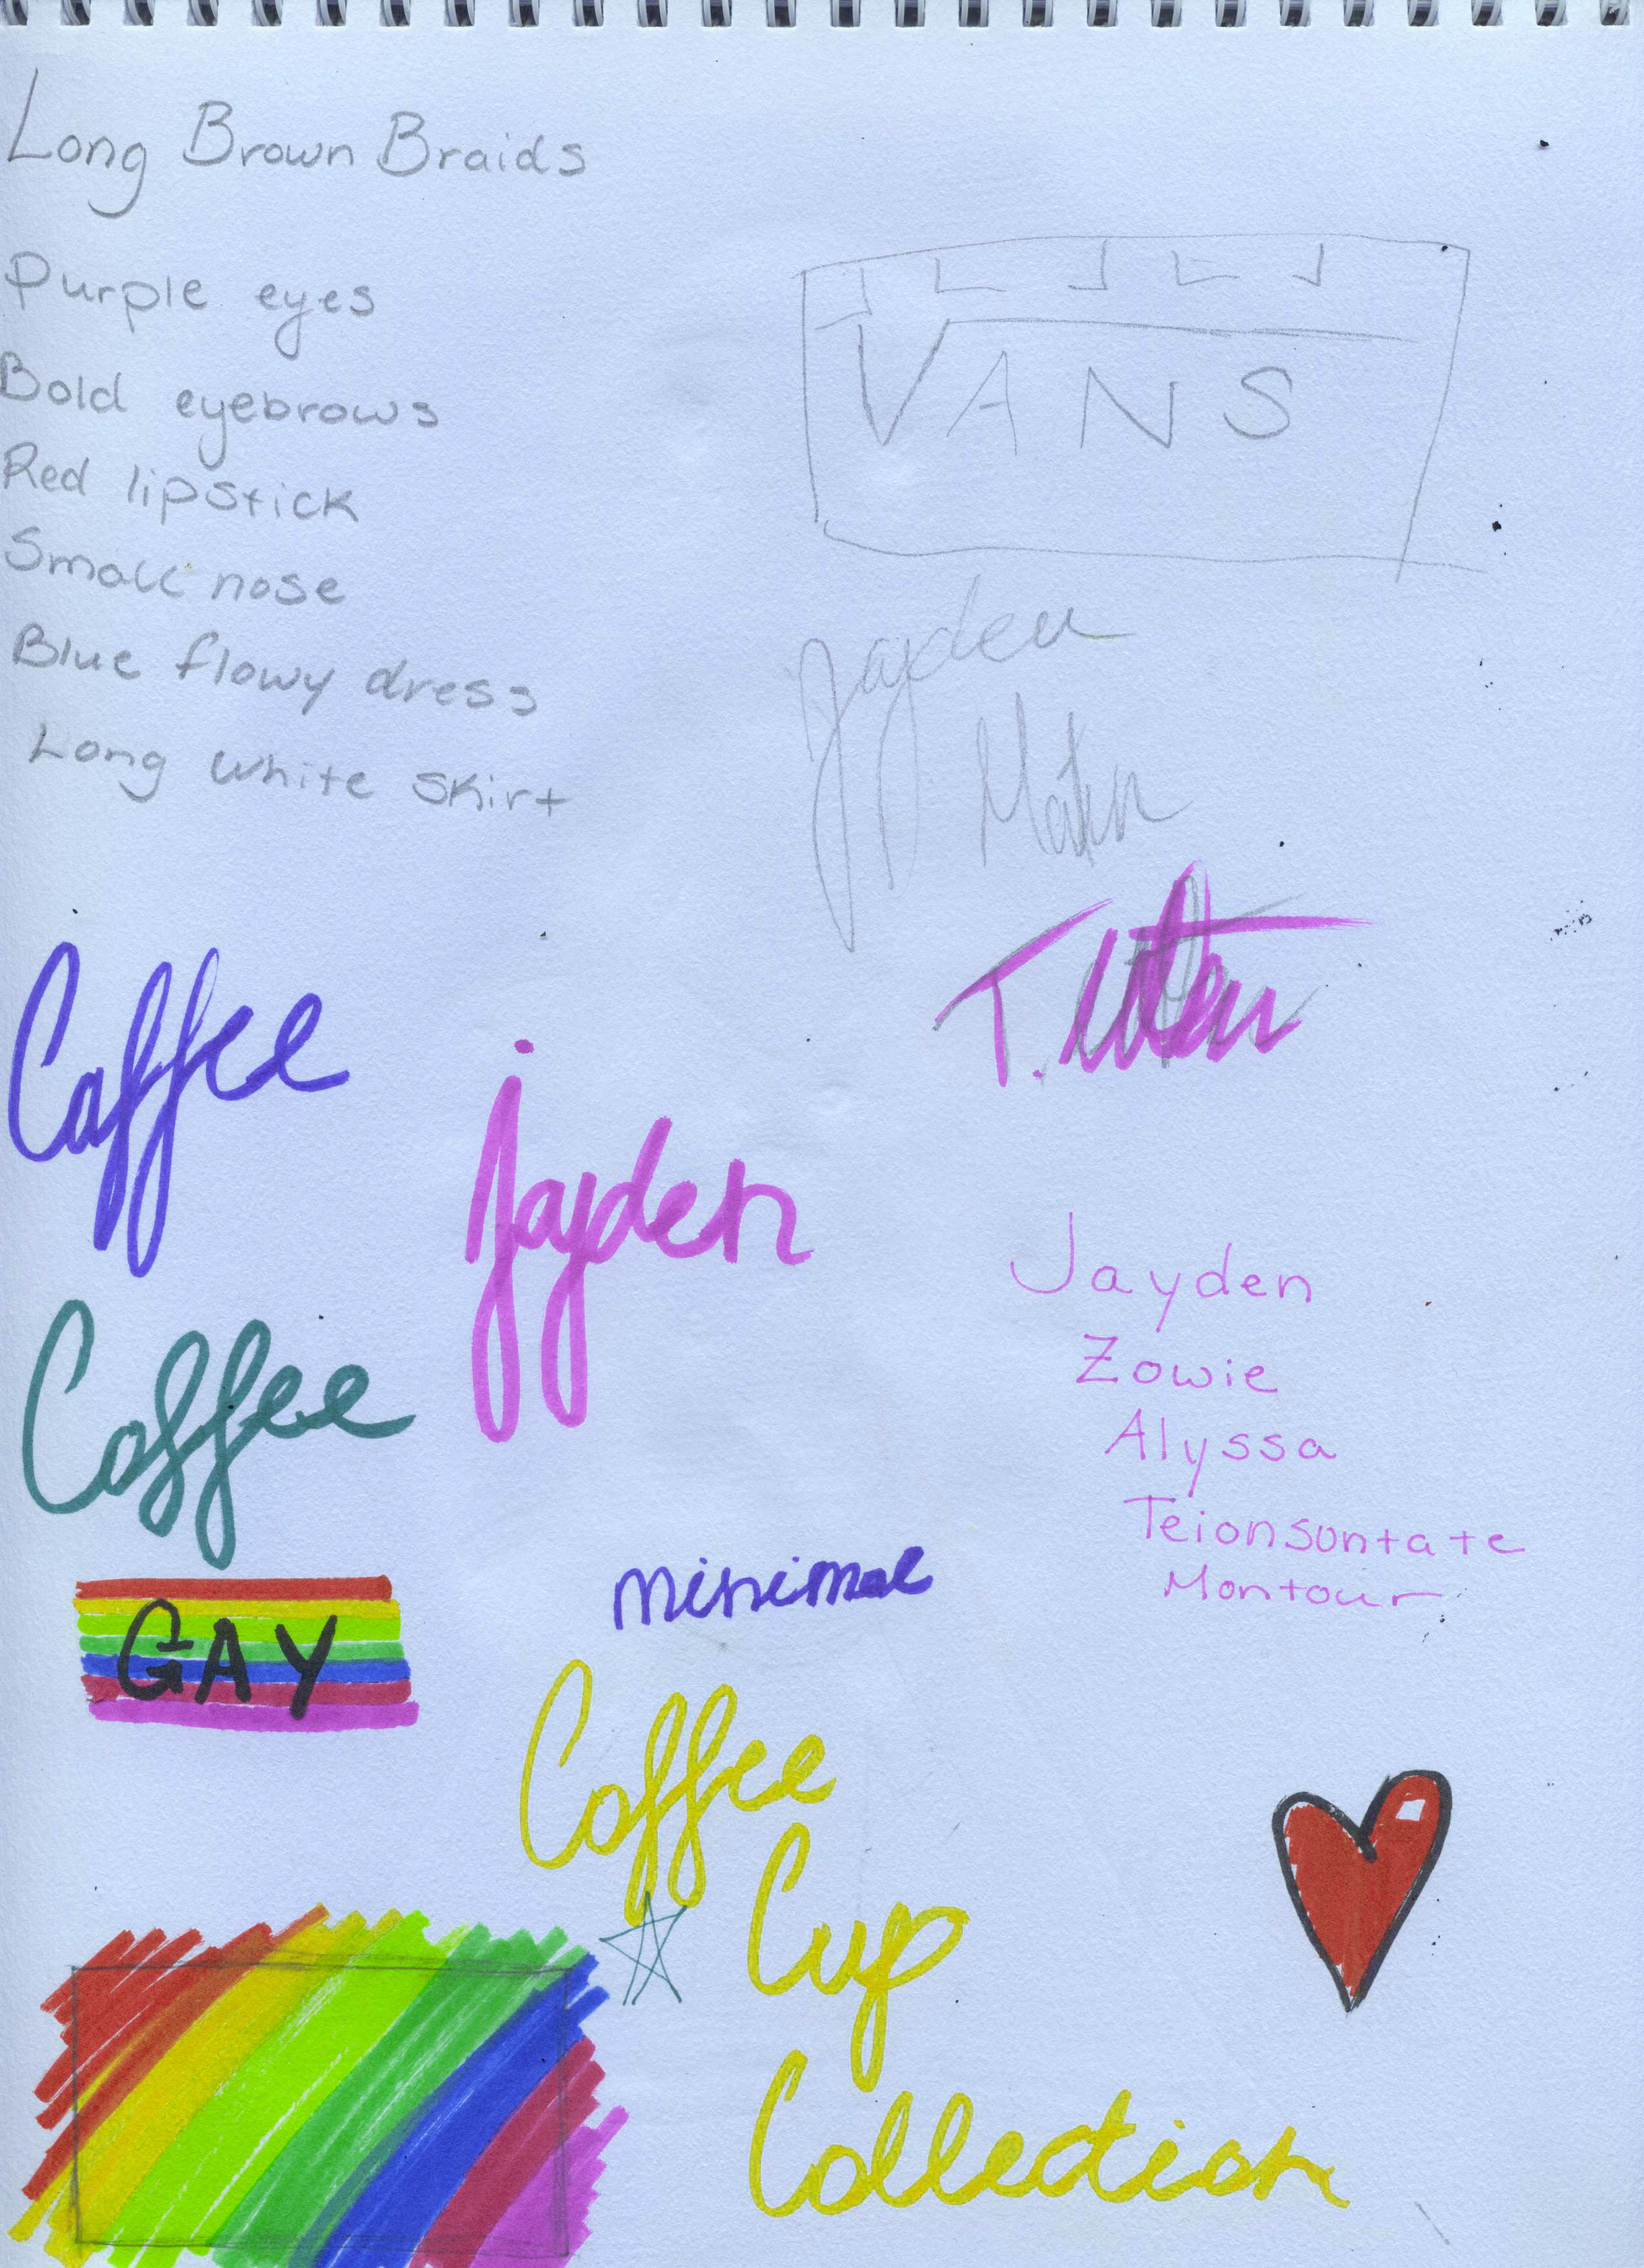 Long Brown Braids
Purple eyes
Bold eyebrows
Red lipstick
Small nose
Blue flowy dress
Long white skirt
VANS
Jayden
Coffee
Jayden
Jayden
Zowie
Alyssa
Teionsontate
Montour
Coffee
GAY
minimal
Coffee
Cup
Collection